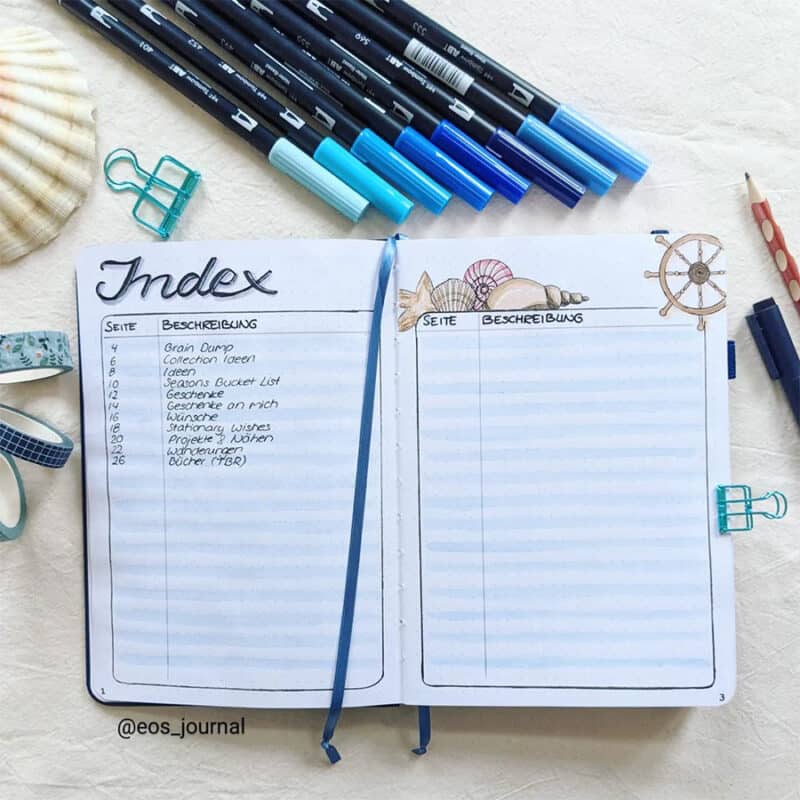 401
452
493
555
569
533
ABT
Index
SEITE BESCHREIBUNG
4 Brain Dump
6 Collection Ideen
8 Ideen
10 Seasons Bucket List
12 Geschenke
14 Geschenke an mich
16 Wünsche
18 Stationary Wishes
20 Projekte & Nähen
22 Wanderungen
26 Bücher (TBR)
1
SEITE BESCHREIBUNG
3
@eos_journal